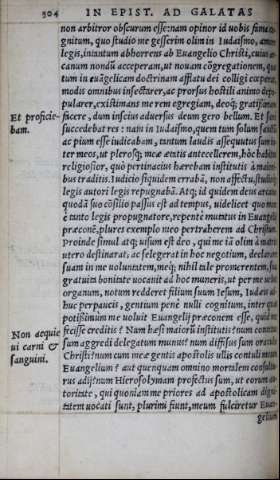 304 IN EPIST. AD GALATAS
non arbitror obscurum esse: nam opinor id uobis fama co-
gnitum, quo studio me gesserim olim in Iudaismo, amore
legis, iniuntum abhorrens ab Euangelio Christi, cuius ar-
canum nondũ acceperam, ut nouam cõgregationem, quæ
tum in euãgelicam doctrinam afflatu dei colligi cœperat,
modis omnibus insectarer, ac prorsus hostili animo depo-
pularer, existimans me rem egregiam, deoq; gratissimã
Et proficie- facere, dum inscius aduersus deum gero bellum. Et sane
bam. succedebat res: nam in Iudaismo, quem tum solum sanctũ
ac pium esse iudicabam, tantum laudis assequutus sum in-
ter meos, ut plerosq; meæ ætatis antecellerem, hoc habitus
religiosior, quò pertinacius hærebam institutis à maiori-
bus traditis. Iudicio siquidem errabã, non affectu, studioq;
legis autori legis repugnabã. Atq; id quidem deus arcano
quodã suo cõsilio passus est ad tempus, uidelicet quo me
è tanto legis propugnatore, repente mutatus in Euangelij
præconẽ, plures exemplo meo pertraherem ad Christum.
Proinde simul atq; uisum est deo, qui me iã olim à matris
utero destinarat, ac selegerat in hoc negotium, declarare
suam in me uoluntatem, meq; nihil tale promerentem, sua
gratuita bonitate uocauit ad hoc muneris, ut per me uelut
organum, notum redderet filium suum Iesum, Iudæis ad-
huc perpaucis, gentium penè nulli cognitum, inter quas
potissimum me uoluit Euangelij præconem esse, quid me
Non acquie fecisse creditis? Num hæsi maiorũ institutis? num contatus
ui carni & sum aggredi delegatum munus? num diffisus sum oraculo
sanguini. Christi? num cum meæ gentis apostolis ullis contuli meum
Euangelium? aut quenquam omnino mortalem consultu-
rus adij? num Hierosolymam profectus sum, ut eorum au-
toritate, qui quoniam me priores ad apostolicam digni-
tatem uocati sunt, plurimi fiunt, meum fulciretur Euan-
gelium